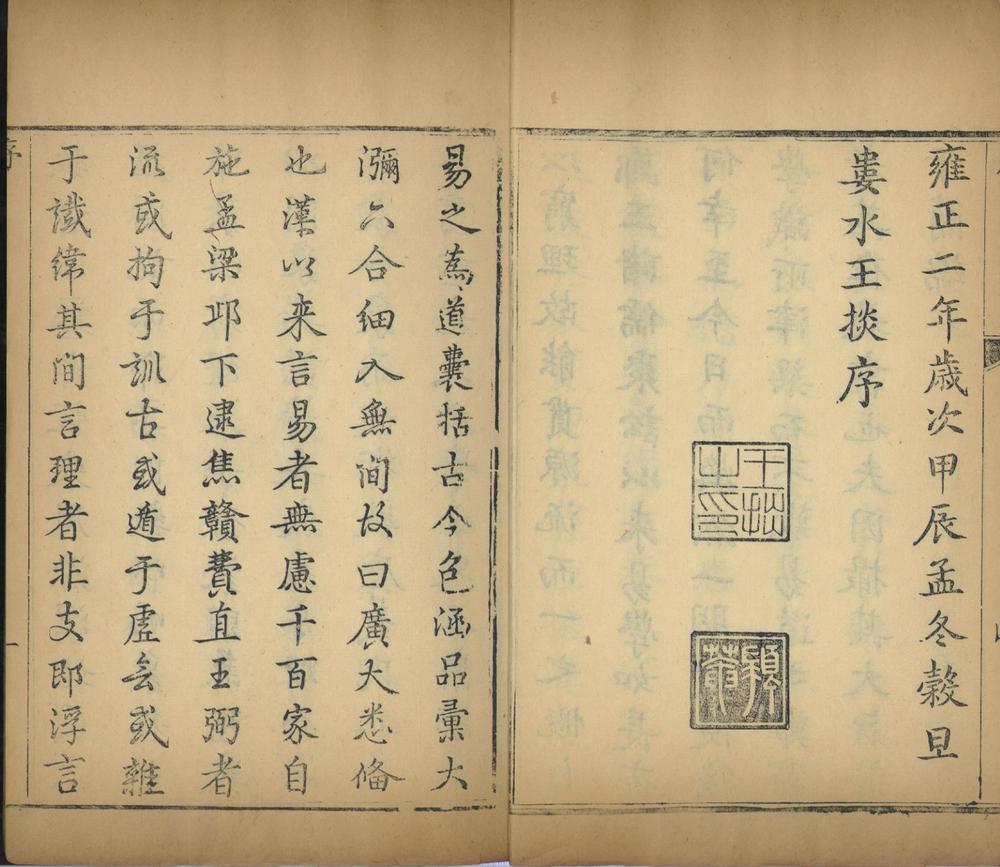 雍正二年歳次甲辰孟冬穀旦
婁水王掞序
王掞之印
顓菴
易之為道囊括古今包涵品彙大
瀰六合細入無间故曰廣大悉俻
也漢以来言易者無慮千百家自
施孟梁邱下逮焦贛費直王弼者
流或拘于訓古或遁于虛玄或雜
于讖緯其间言理者非支即浮言
序
一